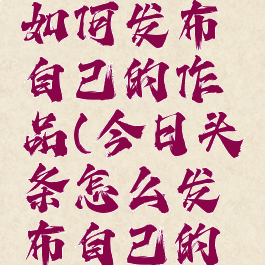 如何发布
自己的作
品(今日头
条怎么发
布自己的